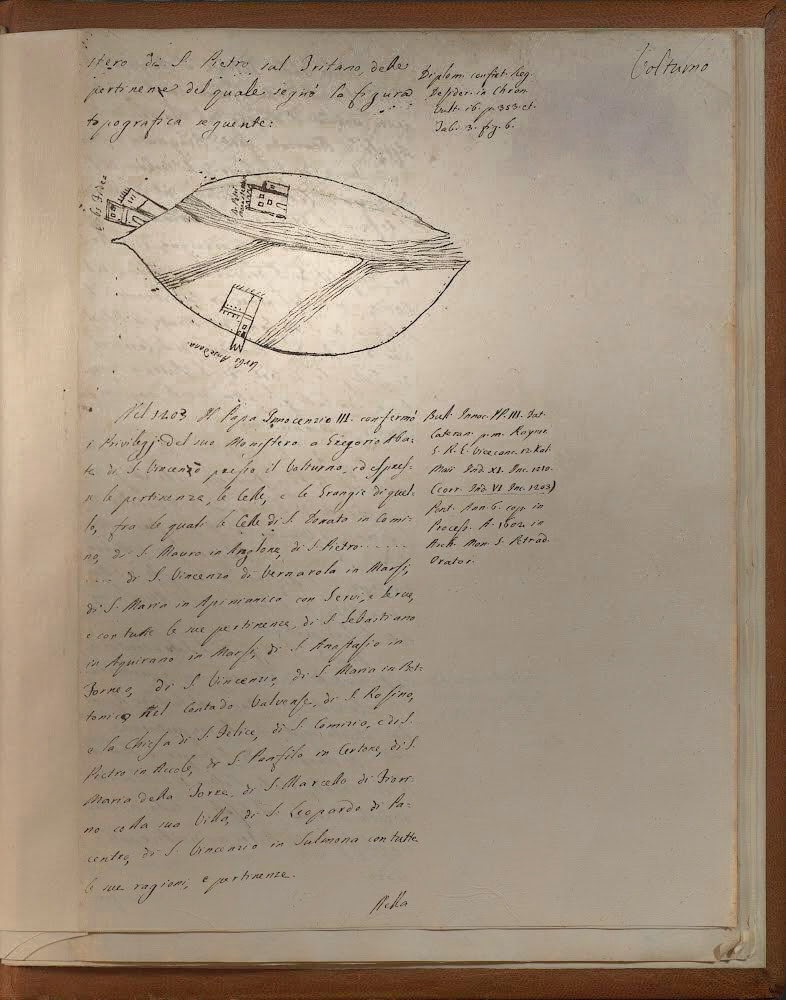 Volturno
stero di S. Pietro sul Tritano, delle
pertinenze del quale segnò la figura
topografica seguente:
Diplom. confict. Reg.
Desider. in Chron.
Vult. rb. p. 353. et.
Tab. 3. fig. 6.
Urbs Ansedona
Nel 1203 Il Papa Innocenzio III. confermò
i Privilegj del suo Monistero a Gregorio Aba-
te di S. Vincenzo presso il Volturno, ed espres-
se le pertinenze, le Celle, e le Grangie di quel-
lo, fra le quali le Celle di S. Donato in Comi-
no, di S. Mauro in Anglone, di S. Pietro . . . . . .
. . . . di S. Vincenzo di Vernarola in Marsi,
di S. Maria in Apinianico con Servi, e Serve,
e con tutte le sue pertinenze, di S. Sebastiano
in Aquirano in Marsi, di S. Anastasio in
Forneo, di S. Vincenzio, di S. Maria in Bet-
tonica nel Contado Valvense, di S. Rosino,
e la Chiesa di S. Felice, di S. Comizio, e di S.
Pietro in Accole, di S. Panfilo in Certone, di S.
Maria della Torre, di S. Marcello di
no colla sua Villa, di S. Leopardo di Pa-
centro, di S. Vincenzio in Sulmona con tutte
le sue ragioni, e pertinenze.
Bull. Innoc. PP. III. Dat.
Lateran. p. m. Rayne.
S. R. E. Vicecanc. 12 Kal.
Maii Ind. XI. Inc. 1210.
(corr. Ind. VI Inc. 1203)
Pont. Ann. 6. cop. in
Process. A. 1602. in
Arch. Mon. S. Petri ad
Orator.
Nella